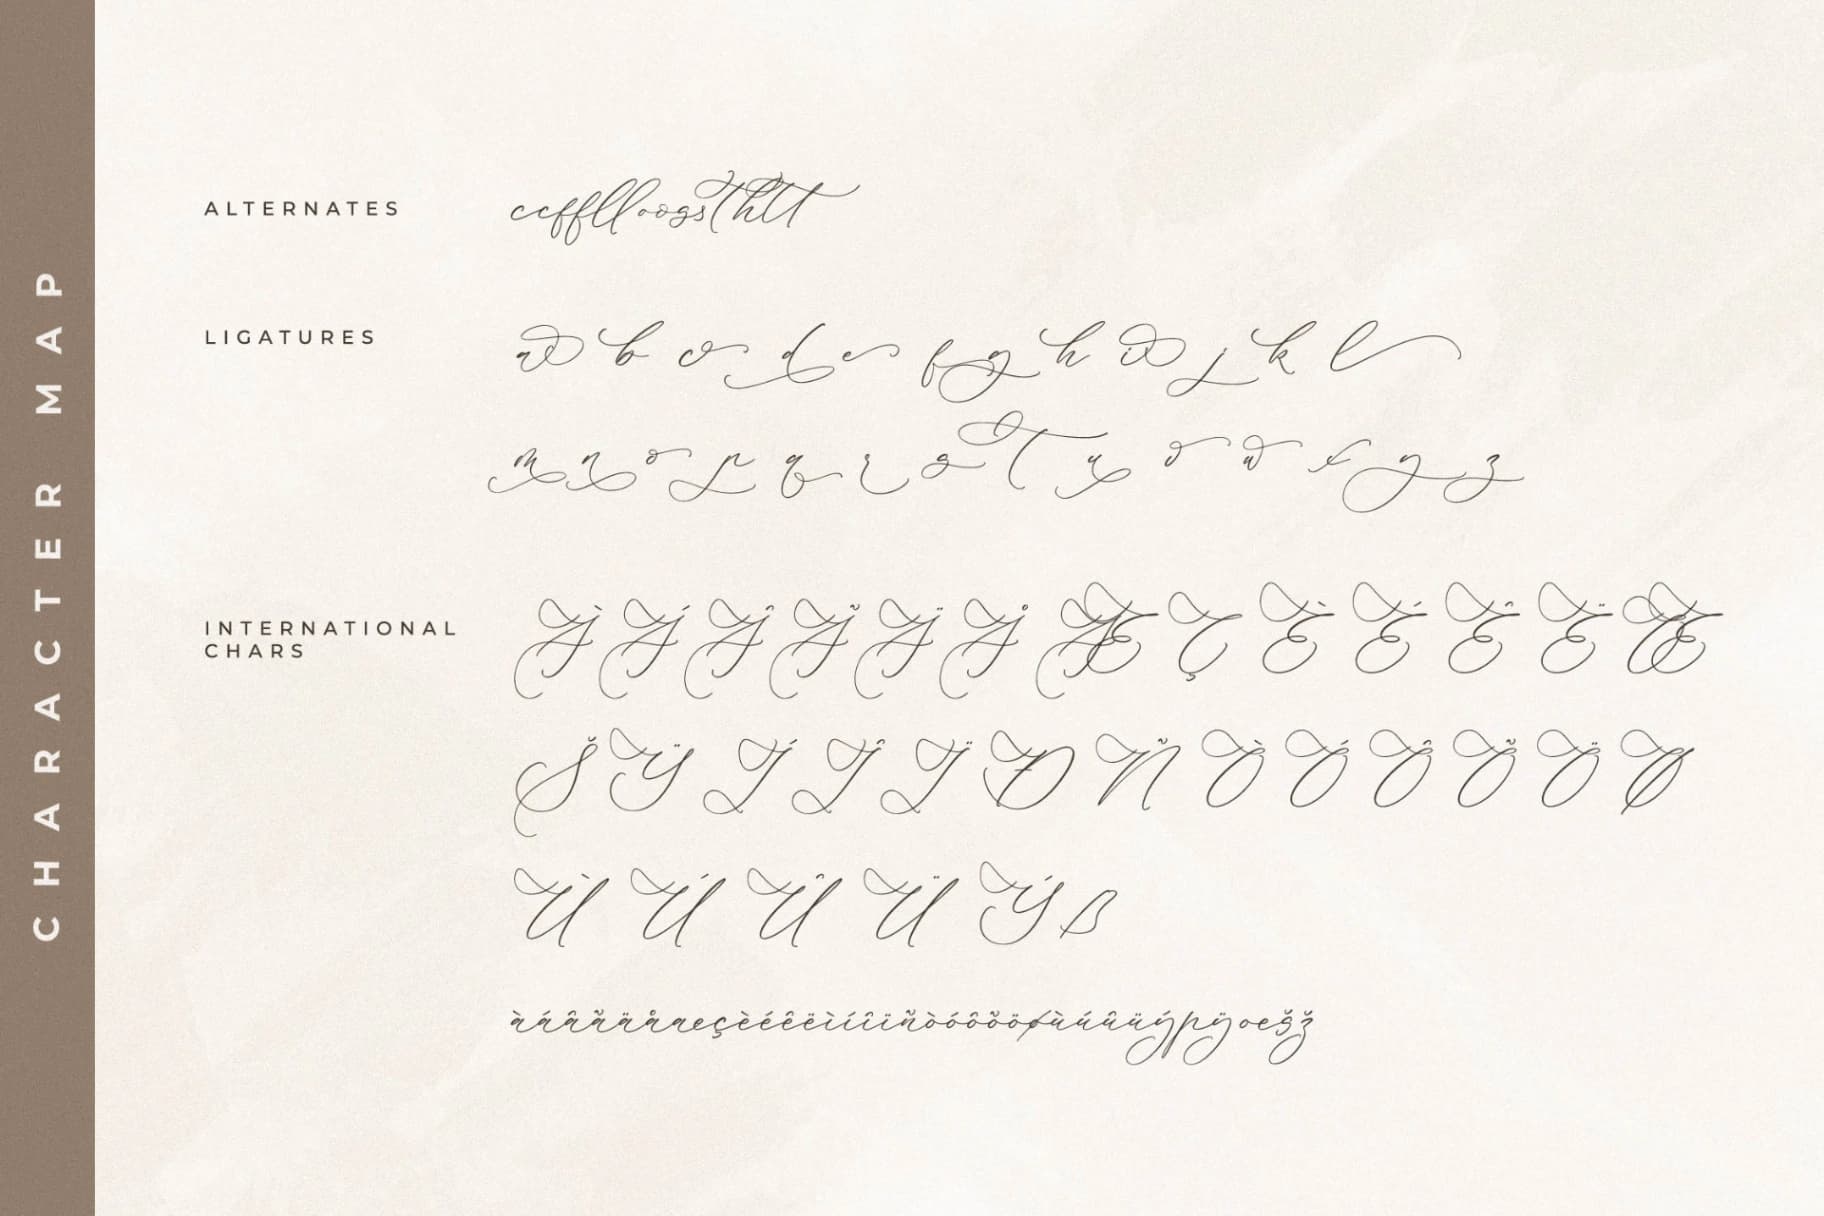 CHARACTER MAP
ALTERNATES
ccfflloogsthltt
LIGATURES
a b c d e f g h i j k l
m n o p q r s t u v w x y z
INTERNATIONAL
CHARS
À Á Â Ã Ä Å Æ Ç È É Ê Ë Œ
Š Ÿ Í Î Ï Ð Ñ Ò Ó Ô Õ Ö Ø
Ù Ú Û Ü Ý ß
àáâãäåæçèéêëìíîïñòóôõöøùúûüýþÿœšž